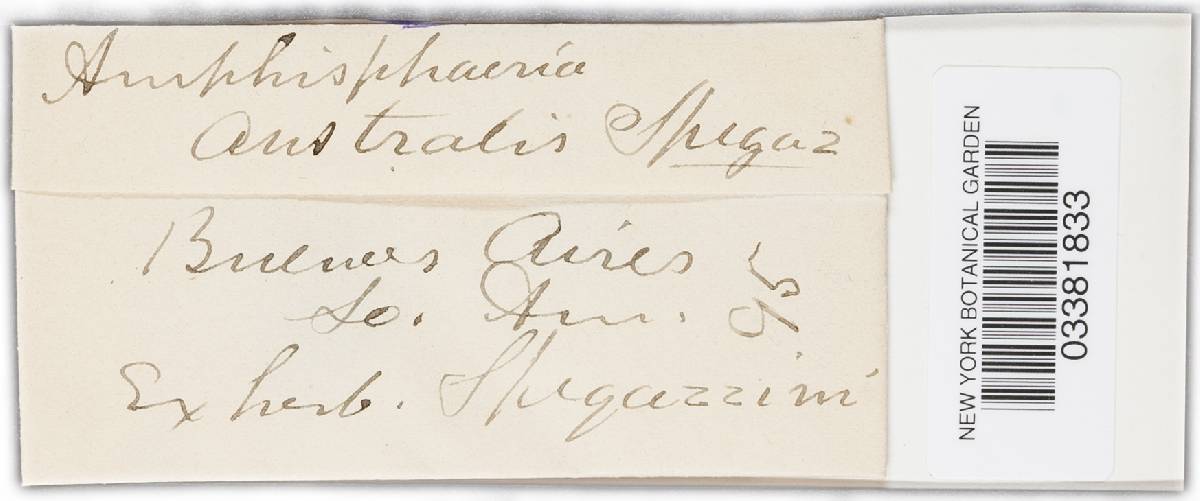 Amphisphaeria
australis Spegaz
Buenos Aires
So. Am.
Ex herb. Spegazzini
NEW YORK BOTANICAL GARDEN
03381833